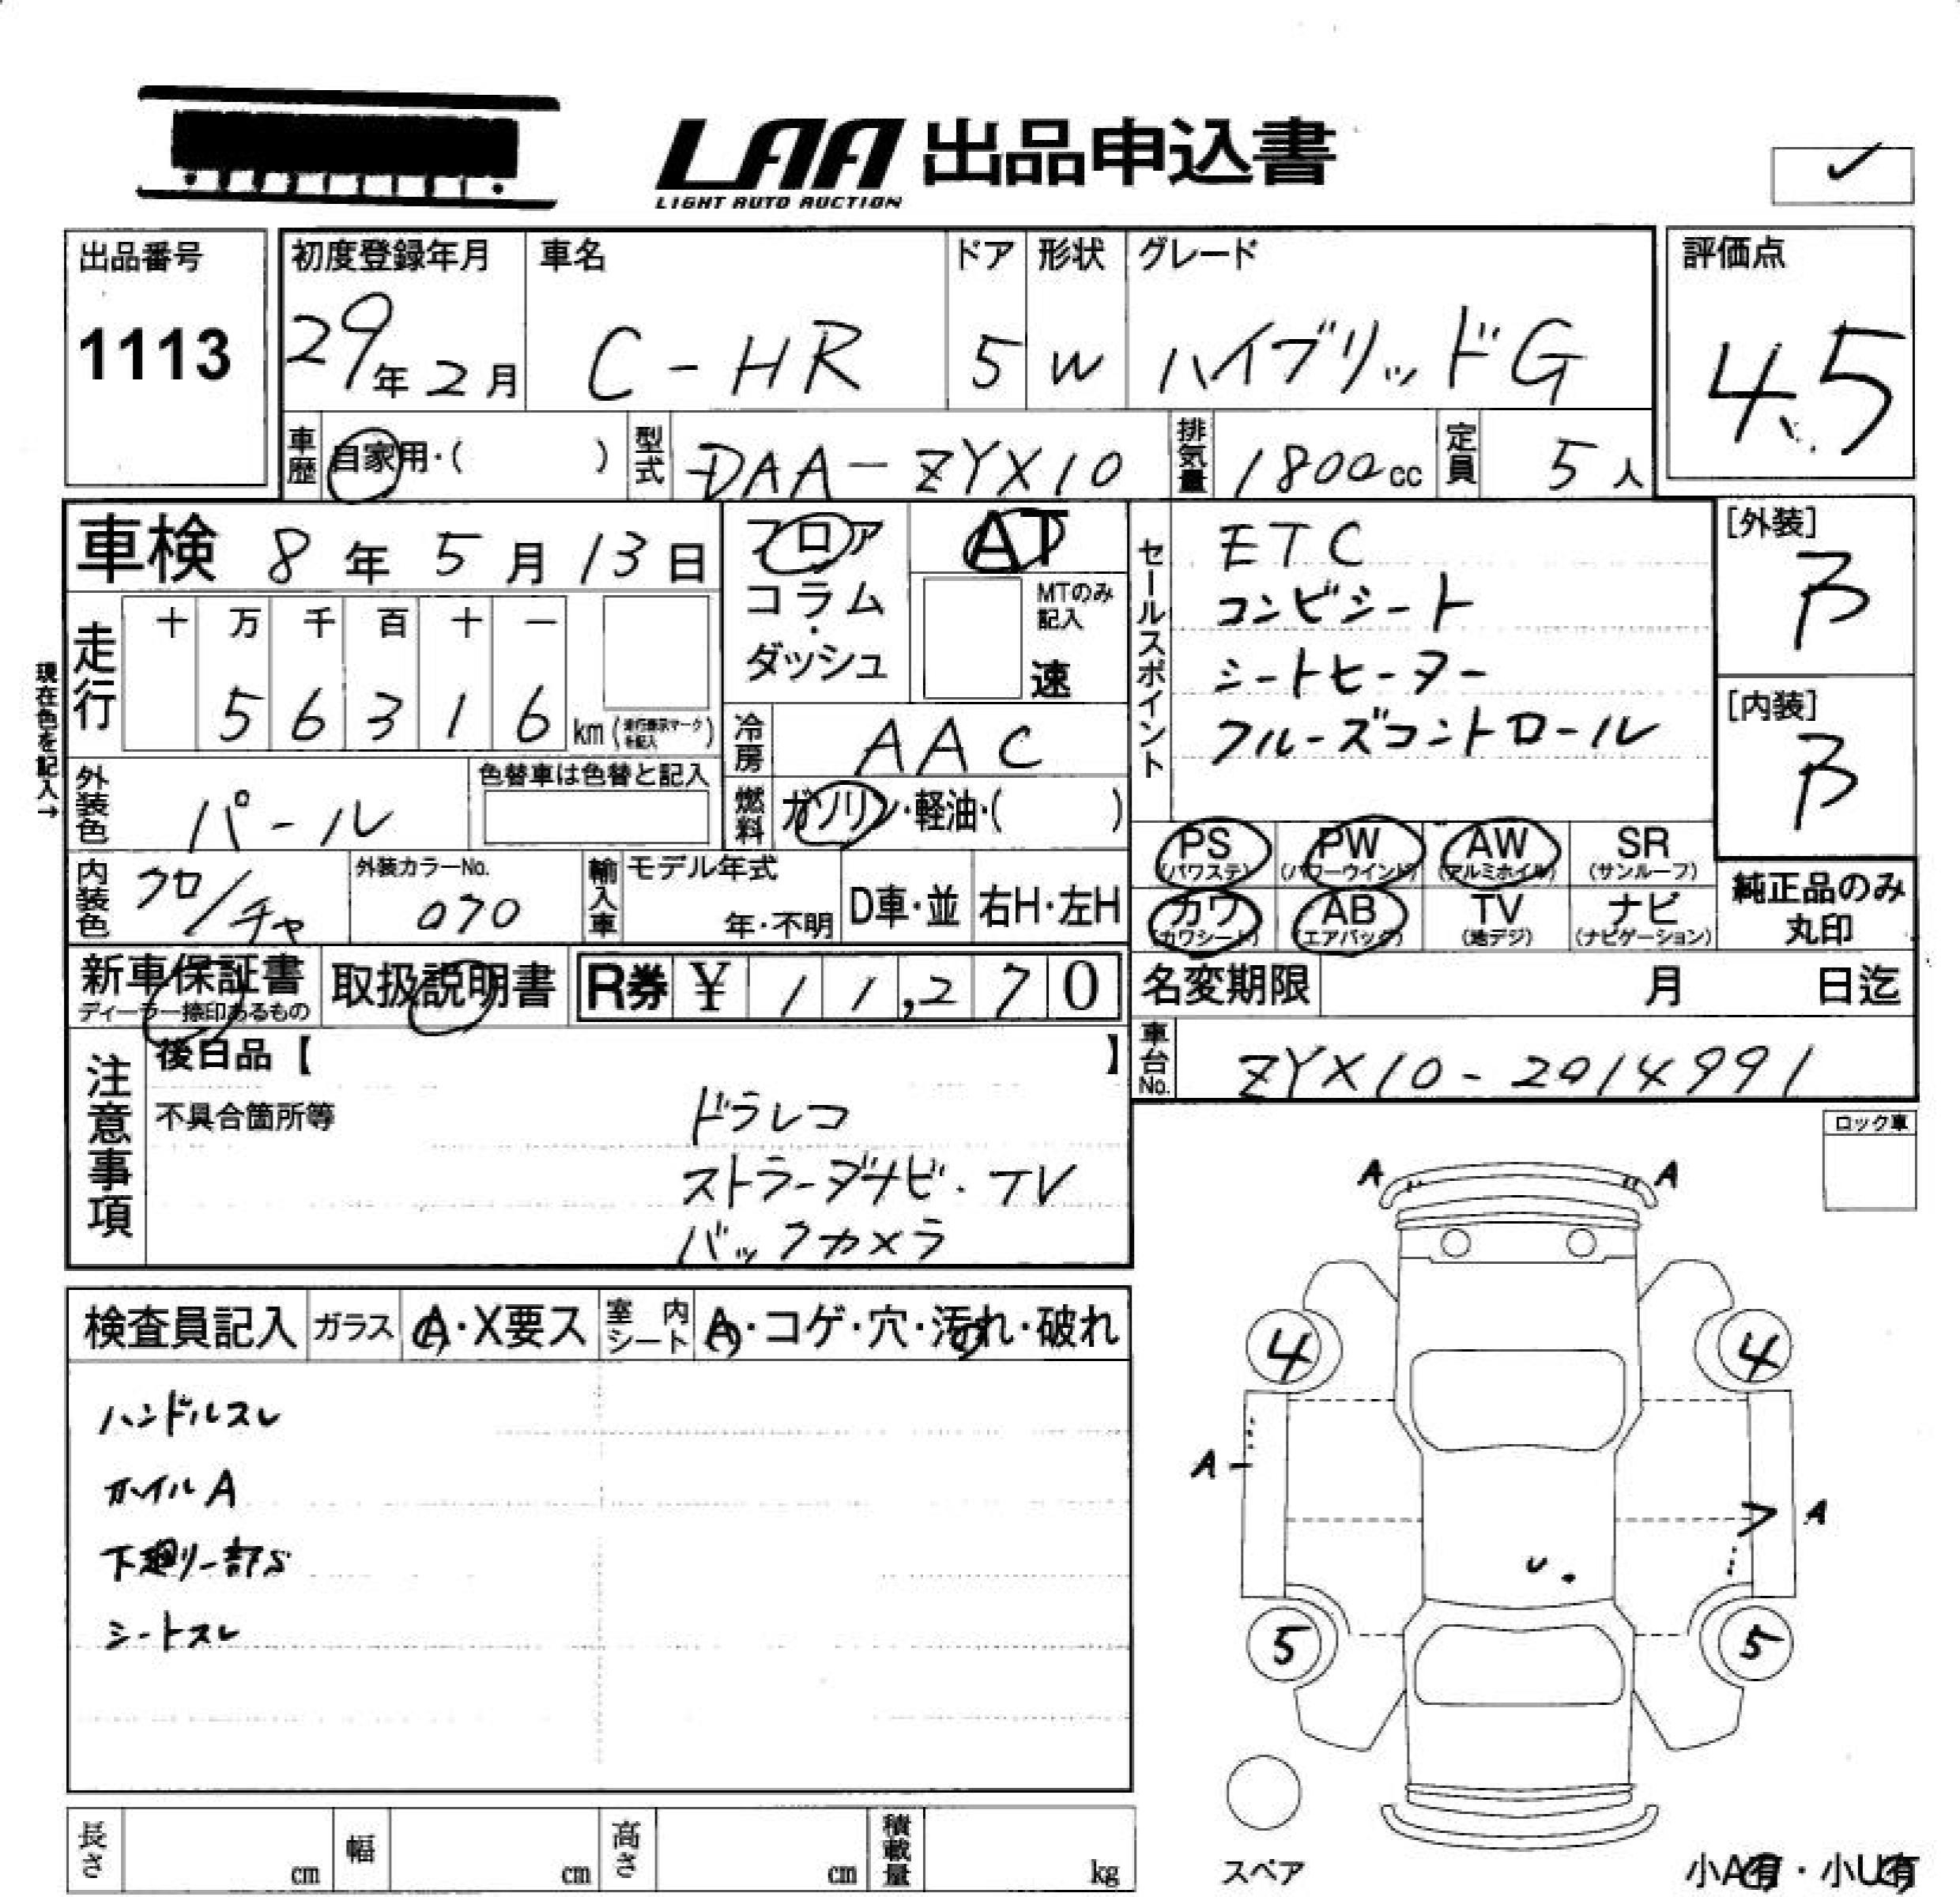 LAA 出品申込書
LIGHT AUTO AUCTION
出品番号
1113
初度登録年月
29年2月
車名
C-HR
ドア
5
形状
W
グレード
ハイブリッドG
評価点
4.5
車歴
自家用・( )
型式
DAA-ZYX10
排気量
1800cc
定員
5人
車検 8年5月13日
フロア
コラム
・
ダッシュ
AT
MTのみ
記入
速
セールスポイント
ETC
コンビシート
シートヒーター
クルーズコントロール
[外装]
B
[内装]
B
現在色を記入→
走行
十 万 千 百 十 一
5 6 3 1 6 km
冷房
AAC
外装色
パール
色替車は色替と記入
燃料
ガソリン・軽油・( )
PS
(パワステ)
PW
(パワーウインド)
AW
(アルミホイル)
SR
(サンルーフ)
内装色
クロ/チャ
外装カラーNo.
070
輸入車
モデル年式
年・不明
D車・並
右H・左H
カワ
(カワシート)
AB
(エアバック)
TV
(地デジ)
ナビ
(ナビゲーション)
純正品のみ
丸印
新車保証書
ディーラー捺印あるもの
取扱説明書
R券 ¥ 11,270
名変期限 月 日迄
注意事項
後日品【 】
車台No.
ZYX10-2014991
不具合箇所等
ドラレコ
ストラーダナビ・TV
バックカメラ
ロック車
A A
検査員記入
ガラス
A・X要ス
室内シート
A・コゲ・穴・汚れ・破れ
ハンドルスレ
ホイルA
下廻り一部S
シートスレ
4 4
A
A
U
5 5
スペア
長さ cm
幅 cm
高さ cm
積載量 kg
小A有・小U有